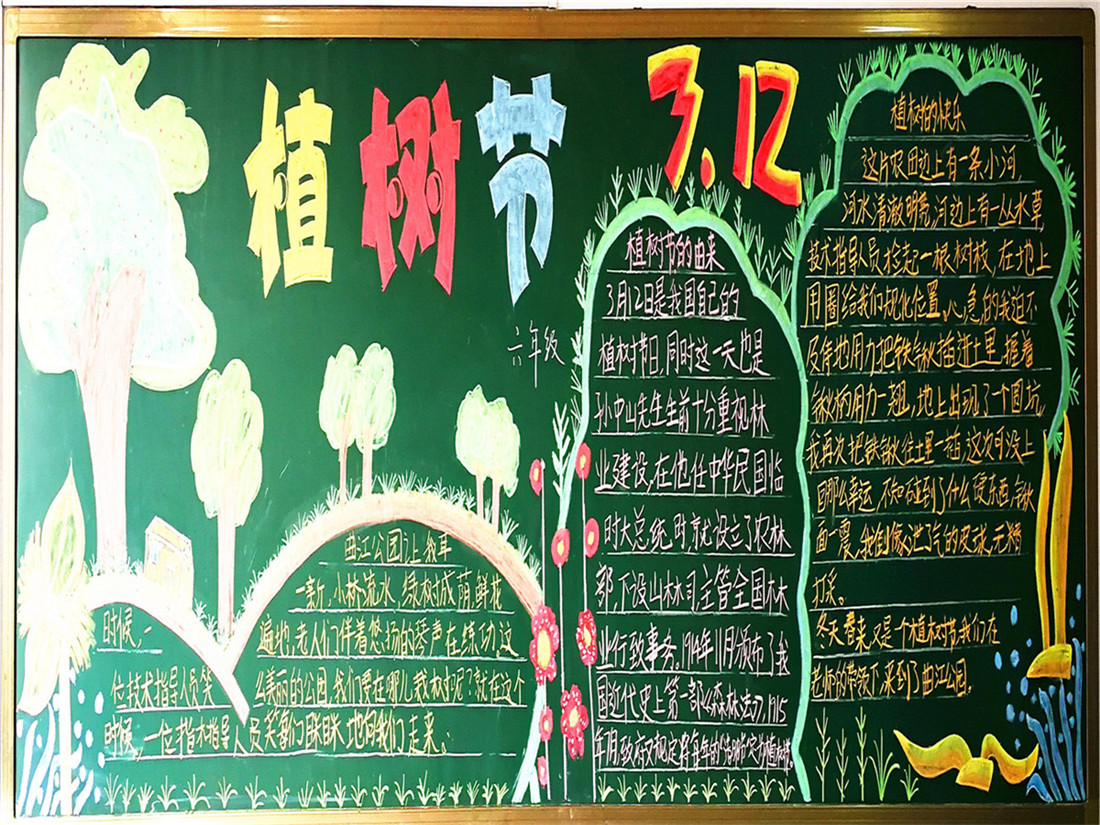 植树节
3.12
六年级
植树节的由来
3月12日是我国自己的
植树节日,同时这一天也是
孙中山先生生前十分重视林
业建设,在他任中华民国临
时大总统时,就设立了农林
部,下设山林司,主管全国林
业行政事务,1914年11月颁布了我
国近代史上第一部《森林法》,1915
年7月,政府又规定将每年的清明定为植树节。
植树的快乐
这片农田边上有一条小河,
河水清澈明亮,河边上有一丛水草,
技术指导人员捡起一根树枝,在地上
用圈给我们规化位置,心急的我迫不
及待地用力把铁锹插进土里,握着
锹柄用力一翘,地上出现了一个圆坑,
我再次把铁锹往土里一插,这次可没上
回那么幸运,不知碰到了什么硬东西,锹
面一震,我倒像泄气的皮球,无精
打采。
冬天春来,又是一个植树节,我们在
老师的带领下来到了曲江公园。
曲江公园门上我耳
一亲斤,小桥流水,绿树成荫,鲜花
遍地,老人们伴着悠扬的琴声在练功,这
么美丽的公园,我们要在哪儿栽树呢?就在这个
时候,一
位技术指导人员笑
时候,一位技术指导人员笑
眯眯地向我们走来。